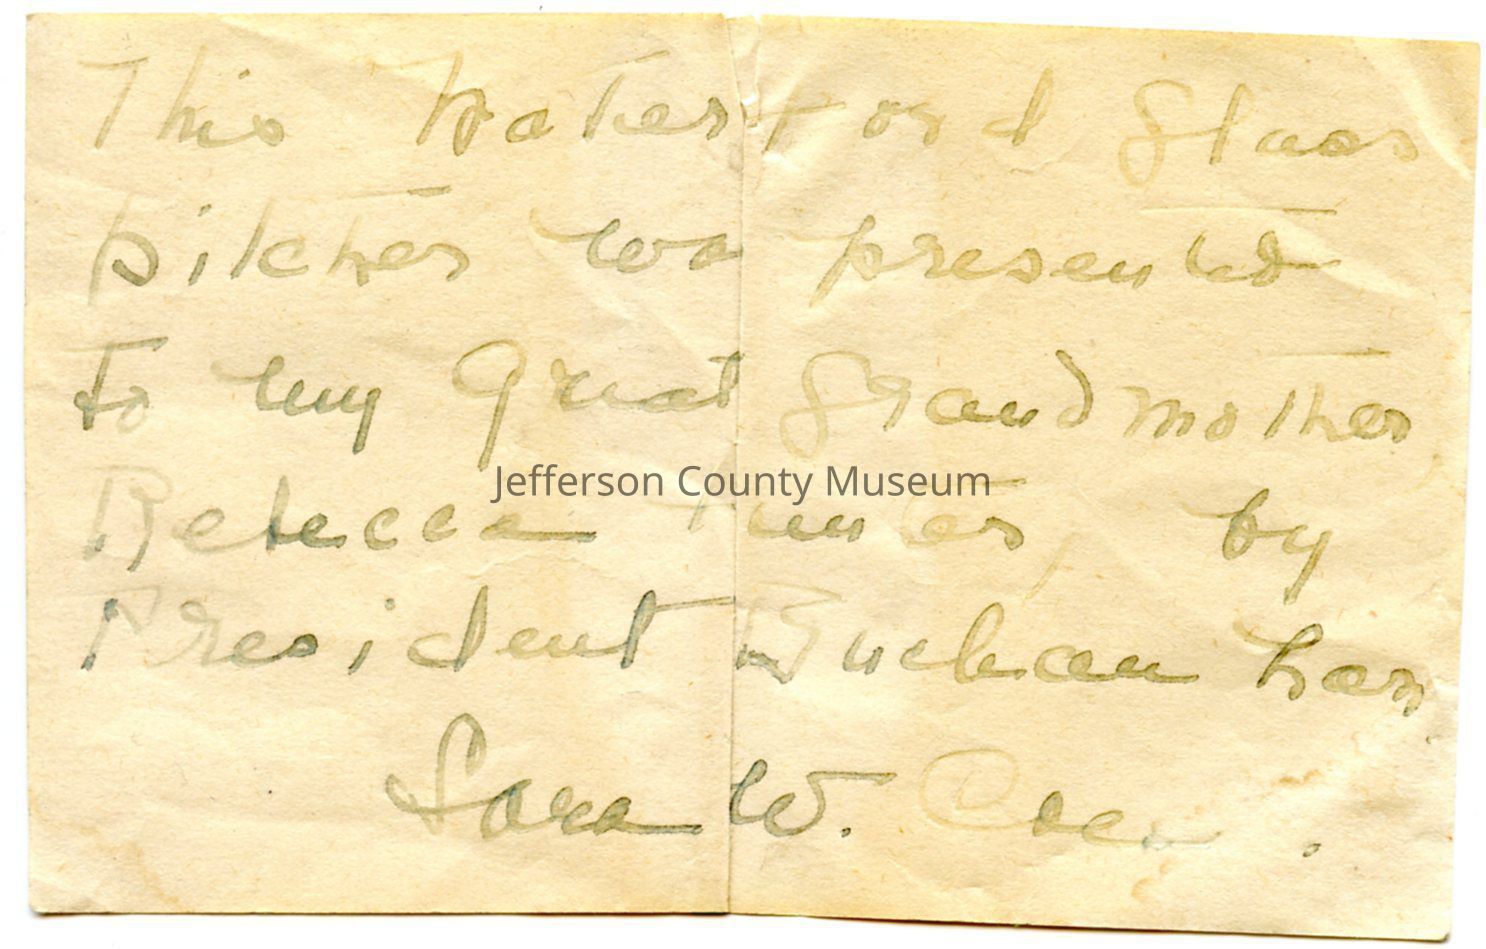 This Waterford Glass
pitcher was presented
to my Great Grandmother
Jefferson County Museum
Rebecca by
President Buchanan
Sara W.